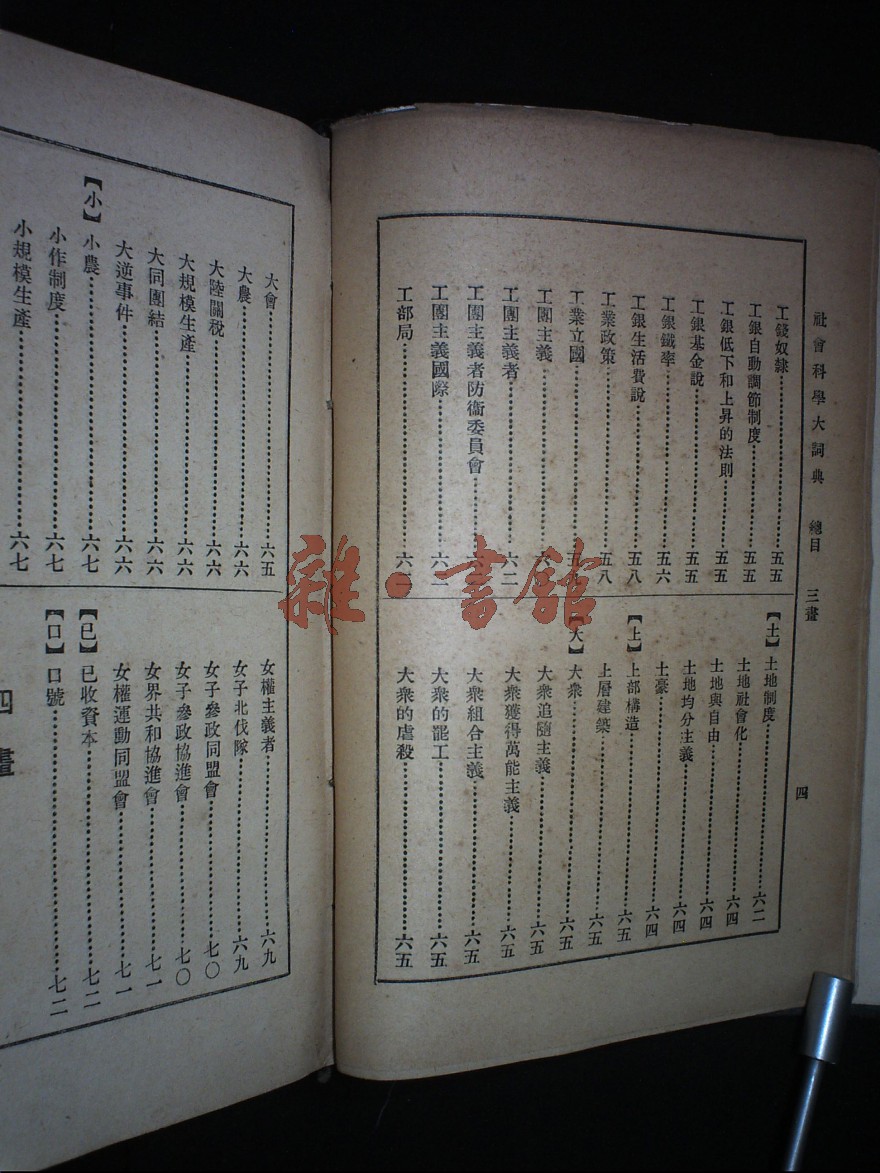 社會科學大詞典 總目 三畫 四
工錢奴隸 五五
工銀自動調節制度 五五
工銀低下和上昇的法則 五五
工銀基金說 五五
工銀鐵率 五六
工銀生活費說 五八
工業政策 五八
工業立國
工團主義
工團主義者 六二
工團主義者防衞委員會
工團主義國際
工部局
【土】 土地制度 六二
土地社會化 六四
土地與自由 六四
土地均分主義 六四
土豪 六四
【上】 上部構造 六五
上層建築 六五
【大】 大衆 六五
大衆追隨主義 六五
大衆獲得萬能主義 六五
大衆組合主義 六五
大衆的罷工 六五
大衆的虐殺 六五
大會 六五
大農 六六
大陸關稅 六六
大規模生產 六六
大同團結 六六
大逆事件 六六
【小】 小農 六七
小作制度 六七
小規模生產 六七
女權主義者 六九
女子北伐隊 六九
女子參政同盟會 七〇
女子參政協進會 七〇
女界共和協進會 七一
女權運動同盟會 七一
【已】 已收資本 七二
【口】 口號 七二
四畫
雜·書館